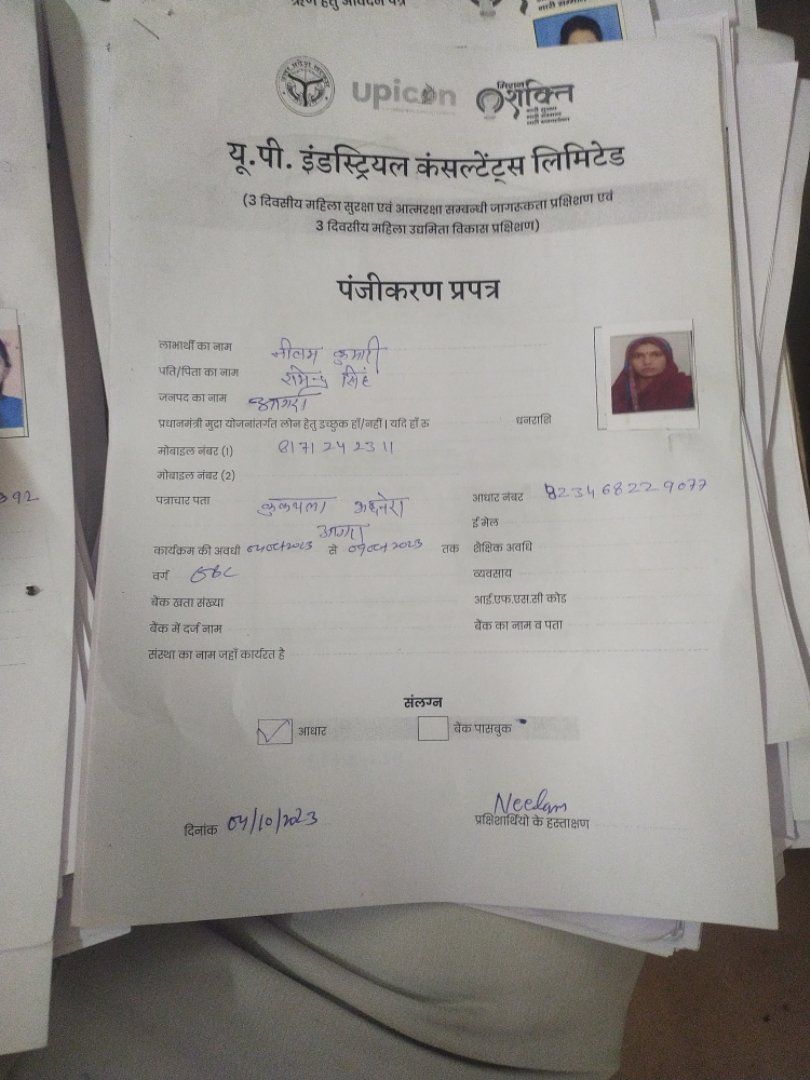 ऋण हेतु आवेदन पत्र
Upicon
मिशन
शक्ति
नारी सुरक्षा
नारी सम्मान
नारी स्वावलंबन
यू.पी. इंडस्ट्रियल कंसल्टेंट्स लिमिटेड
(3 दिवसीय महिला सुरक्षा एवं आत्मरक्षा सम्बन्धी जागरूकता प्रक्षिशण एवं
3 दिवसीय महिला उद्यमिता विकास प्रक्षिशण)
पंजीकरण प्रपत्र
लाभार्थी का नाम नीलम कुमारी
पति/पिता का नाम सिंह
जनपद का नाम आगरा
प्रधानमंत्री मुद्रा योजनांतर्गत लोन हेतु इच्छुक हाँ/नहीं। यदि हाँ रू धनराशि
मोबाइल नंबर (1) 8171242311
मोबाइल नंबर (2)
पत्राचार पता कुकथला अछनेरा आधार नंबर 823468229077
आगरा ई मेल
कार्यक्रम की अवधी 04 oct 2023 से 09 oct 2023 तक शैक्षिक अवधि
वर्ग OBC व्यवसाय
बैंक खता संख्या आई.एफ.एस.सी कोड
बैंक में दर्ज नाम बैंक का नाम व पता
संस्था का नाम जहाँ कार्यरत है
संलग्न
आधार बैंक पासबुक
दिनांक 04/10/2023 Neelam
प्रक्षिशार्थियो के हस्ताक्षण
392